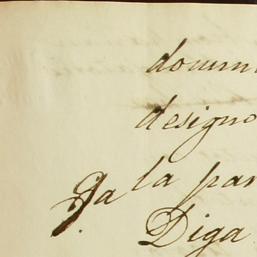 docum
designo
Ja la par
Diga